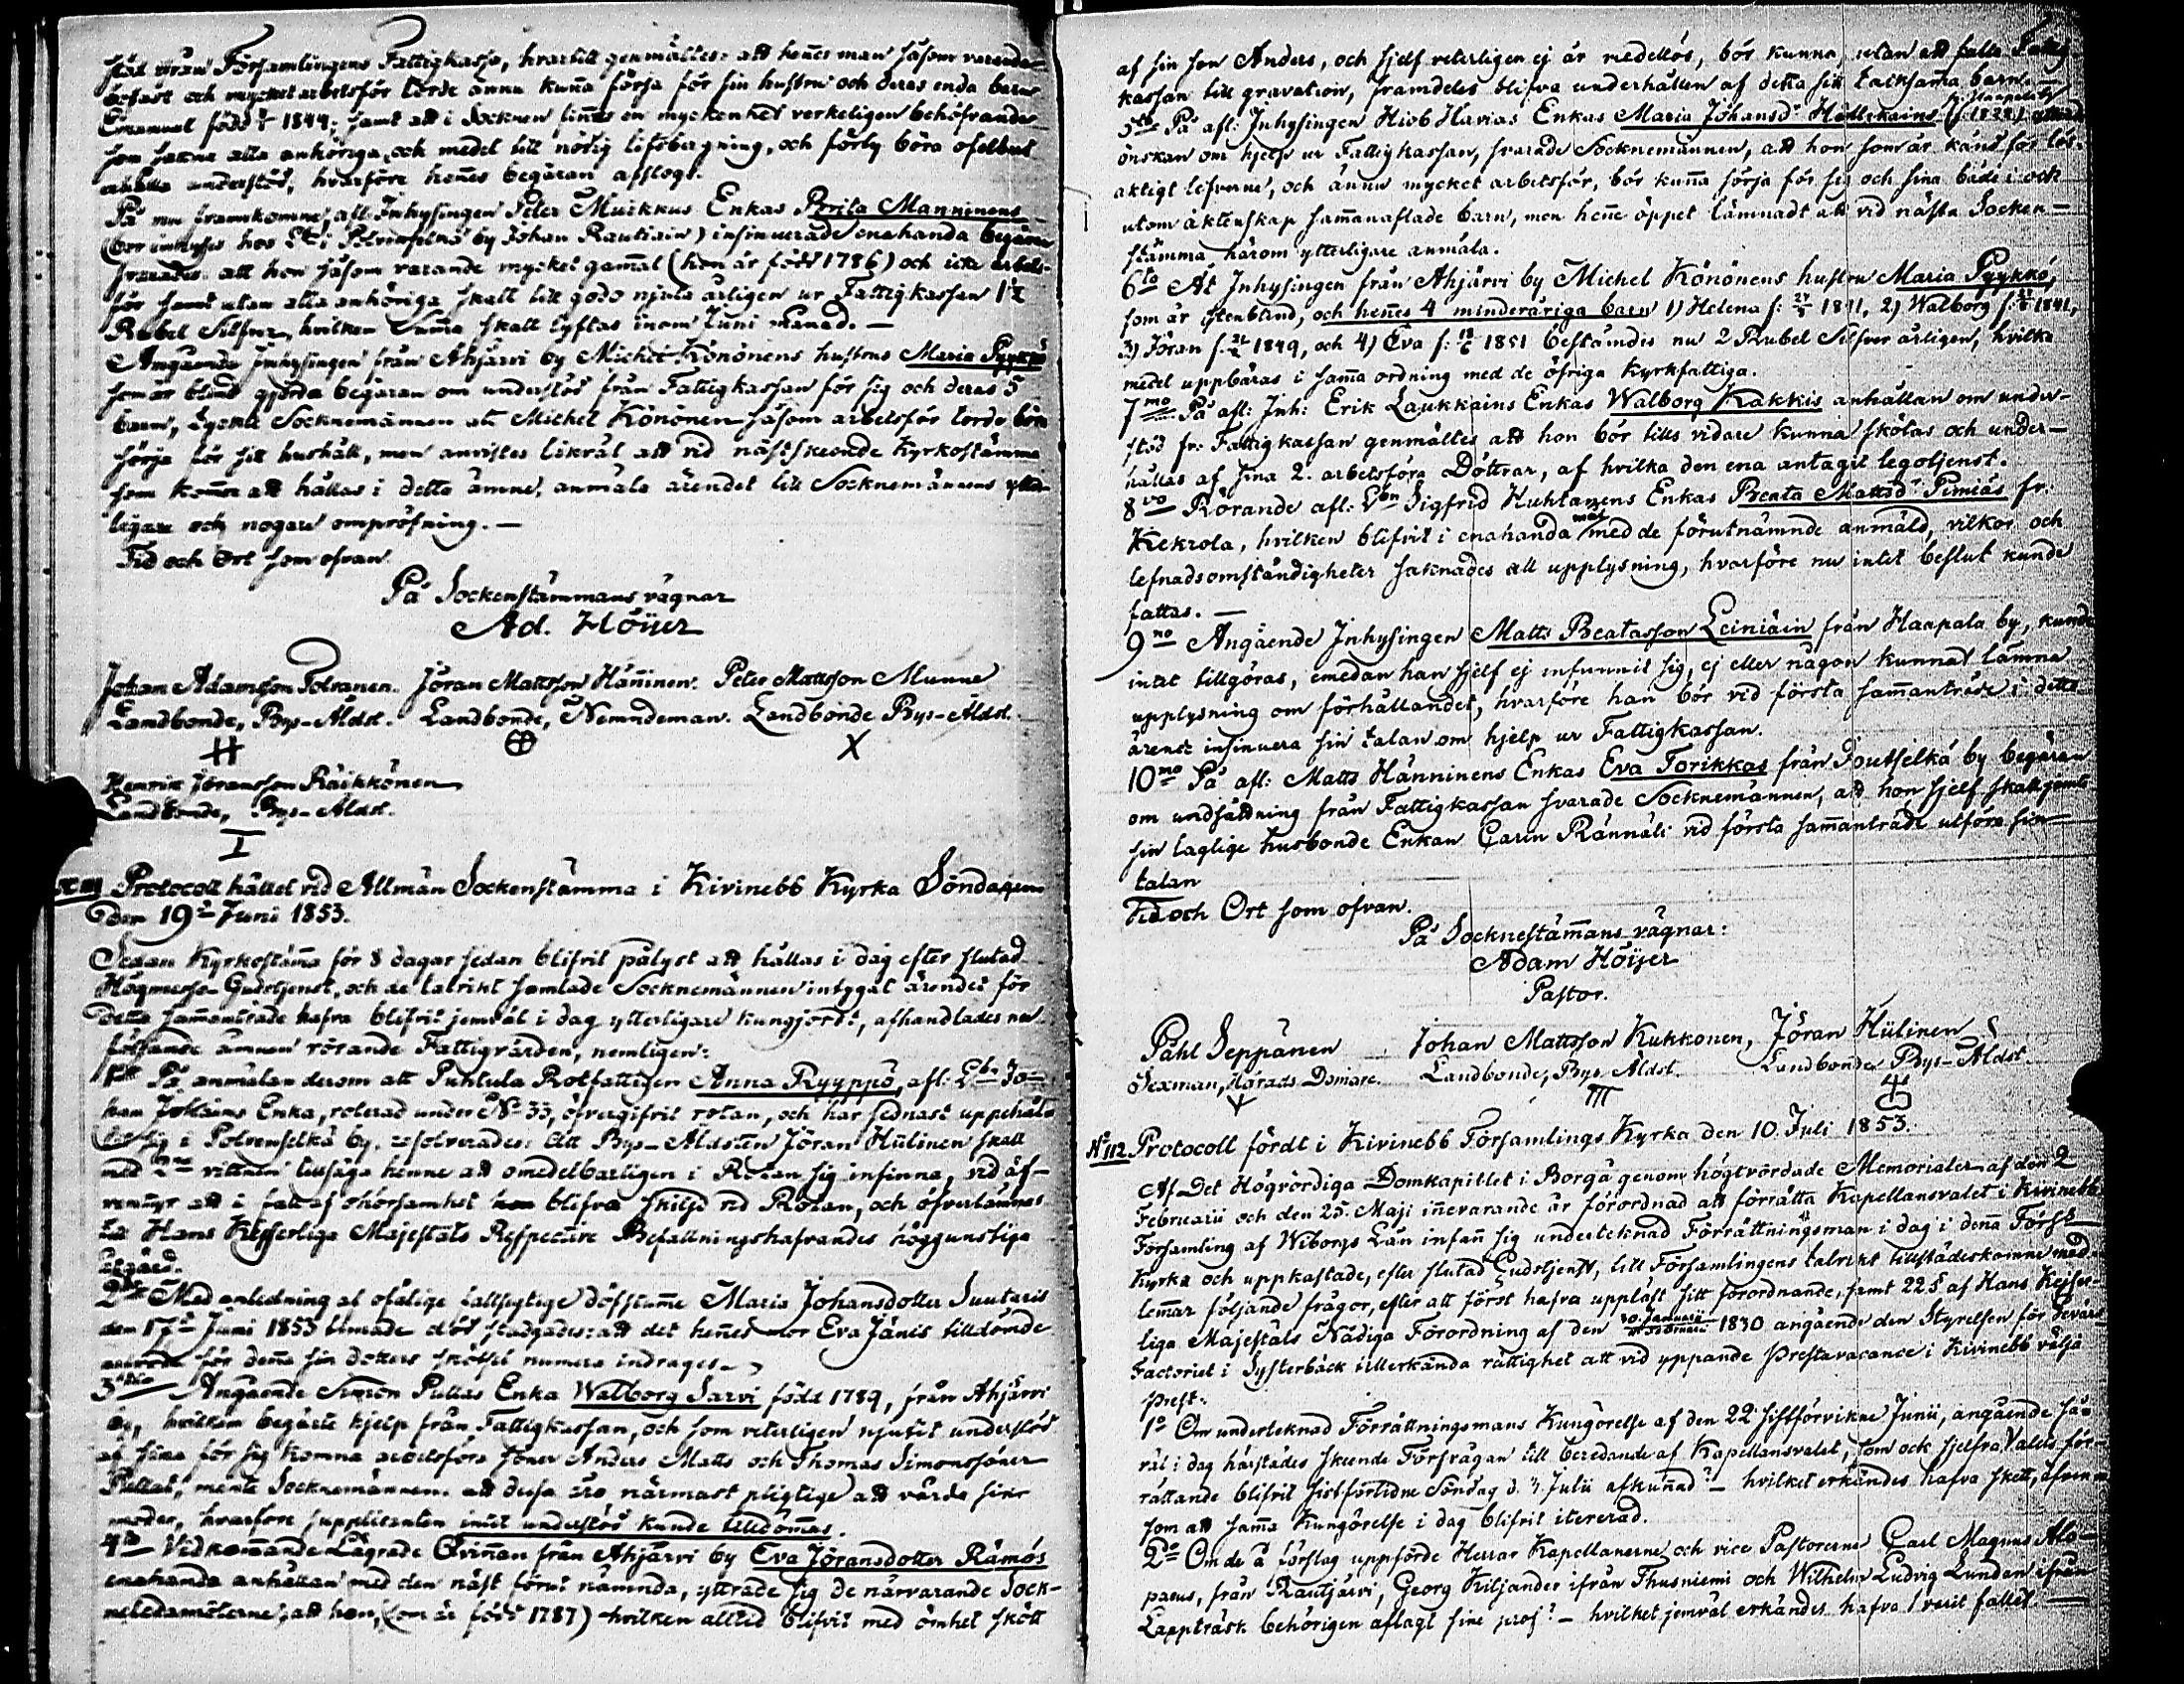 stöd från Församlingens Fattigkassa, hvartill genmältes: att hen̄es man såsom varande
bofast och mycket arbetsför torde ännu kun̄a sörja för sin hustru och deras enda barn
Emanuel född 1844; samt att i Socknen fin̄es en myckenhet verkeligen behöfvande
som sakna alla anhöriga, och medel till nödig lifsbergning, och förty böra ofelbart
erhålla understöd, hvarföre hen̄es begäran afslogs.
På nu framkomne, afl: Inhysingen Peter Muikkus Enkas Brita Manninens
(bor inhyses hos i Polvenselkä by Johan Rautiain) insinuerade enahanda begäran
svarades: att hon såsom varande mycket gam̄al (hon är född 1786) och icke arbets-
för samt utan alla anhöriga skall till godo njuta årligen ur Fattigkassan 1½
Rubel Silfver, hvilken Sum̄a skall lyftas inom Juni Månad. —
Angående Inhysingen från Ahjärvi by Michel Könönens hustrus Maria Pyykkö
som är blind gjorda begäran om understöd från Fattigkassan för sig och deras 5
barn, tyckte Socknemännen att Michel Könönen såsom arbetsför torde böra
sörja för sitt hushåll, men anvistes likväl att vid nästskeende Kyrkostämma
som kom̄er att hållas i detta ämne, anmäla ärendet till Socknemännens ytter-
ligare och nogare ompröfning. —
Tid och Ort som ofvan.
På Sockenstämmans vägnar
Ad. Höijer
Johan Adamsson Polvanen. Jöran Mattsson Hän̄inen. Peter Mattsson Munne
Landbonde, Bys-Åldst. Landbonde, Nemndeman. Landbonde Bys-Åldst.
Henrik Jöransson Räikkönen
Landbonde, Bys-Åldst.
N 111 Protocoll hållet vid Allmän Sockenstämma i Kivinebb Kyrka Söndagen
den 19 Juni 1853.
Sedan Kyrkostäm̄a för 8 dagar sedan blifvit pålyst att hållas i dag efter slutad
Högmesso Gudstjenst, och de talrikt samlade Socknemännen intygat ärendet för
detta sam̄anträde hafva blifvit jemväl i dag ytterligare kungjordt, afhandlades nu
följande ämnen rörande Fattigvården, nemligen:
1 På anmälan derom att Puhtula Rotfattigen Anna Ryyppö, afl: Lbn Jo-
han Enka, roterad under No 33, öfvergifvit rotan, och har sednast uppehållit
sig i Polvenselkä by, resolverades: Att Bys-Åldsten Jöran Hülinen skall
med 2ne vittnen tillsäga henne att omedelbarligen i Rotan sig infinna, vid äf-
ventyr att i fall af ohörsamhet blifva skiljd vid Rotan, och öfverlämnas
till Hans Kejserliga Majestäts Respective Befallningshafvandes höggunstiga
åtgärd.
2 Med anledning af ofärdige fallsigtige döfstum̄e Maria Johansdotter Suutaris
den 17 Juni 1853 timade död stadgades: att det hen̄es mor Eva Jänis tilldömde
arvode för den̄a sin dotters skötsel numera indrages.
3 Angående Simon Pullas Enka Walborg Sarvi född 1789, från Ahjärvi
by, hvilken begärte hjelp från Fattigkassan, och som veterligen njutit understöd
af sina för sig komna arbetsföra söner Anders Matts och Thomas Simonssöner
Pullas, mente Socknemännen att dessa äro närmast pligtige att vårda sin
moder, hvarföre supplicanten intet understöd kunde tilldömas.
4to Vidkom̄ande Lägrade Qvin̄an från Ahjärvi by Eva Jöransdotter Rämös
enahanda anhållan med den näst förut nämnda, yttrade sig de närvarande Sock-
neledamöterne, att hon, (som är född 1787) hvilken alltid blifvit med ömhet skött
af sin son Anders, och sjelf veterligen ej är medellös, bör kunna, utan att falla Fattig
kassan till gravation, framdeles blifva underhållen af detta sitt tacksamma barn. —
5to På afl: Inhysingen Hiob Havias Enkas Maria Johansdr Hällikäins
önskan om hjelp ur Fattigkassan, svarade Socknemännen, att hon som är känd för lös-
aktigt lefverne, och ännu mycket arbetsför, bör kun̄a sörja för sig och sina både i och
utom äktenskap sam̄anaflade barn, men hen̄e öppet lämnadt att vid nästa Socken-
stämma härom ytterligare anmäla.
6to Åt Inhysingen från Ahjärvi by Michel Könönens hustru Maria Pyykkö,
som är stenblind, och hen̄es 4 minderåriga barn 1) Helena f: 1841, 2) Walborg f: 1841,
3) Jöran f: 1849, och 4) Eva f: 1851 bestämdes nu 2 Rubel Silfver årligen, hvilka
medel uppbäras i sam̄a ordning med de öfriga Kyrkfattiga.
7mo På afl: Inh: Erik Laukkains Enkas Walborg Kakkis anhållan om under-
stöd fr. Fattigkassan genmältes att hon bör tills vidare kunna skötas och under-
hållas af sina 2. arbetsföra Döttrar, af hvilka den ena antagit legotjenst.
8vo Rörande afl: Lbn Sigfrid Huhtanens Enkas Beata Mattsdr Pimiäs fr:
Kekrola, hvilken blifvit i enahanda mål med de förutnämnde anmäld, vilkor och
lefnadsomständigheter saknades all upplysning, hvarföre nu intet beslut kunde
fattas. —
9no Angående Inhysingen Matts Beatasson Leiniäin från Haapala by, kunde
intet tillgöras, emedan han sjelf ej infunnit sig, ej eller någon kunnat lämna
upplysning om förhållandet, hvarföre han bör vid första sam̄anträde i detta
ärende insinuera sin talan om hjelp ur Fattigkassan.
10mo På afl: Matts Hänninens Enkas Eva Torikkas från Joutselkä by begäran
om undsättning från Fattigkassan svarade Socknemännen, att hon sjelf skall jemte
sin laglige husbonde Enkan Carin Rännäli vid första sam̄anträde utföra sin
talan
Tid och Ort som ofvan.
På Socknestäm̄ans vägnar:
Adam Höijer
Pastor.
Påhl Seppänen Johan Mattsson Kukkonen, Jöran Hülinen
Sexman, Härads Domare. Landbonde, Bys Åldst. Landbonde Bys-Åldst.
No 112. Protocoll fördt i Kivinebb Församlings Kyrka den 10. Juli 1853.
Af Det Högvördiga Domkapitlet i Borgå genom högtvördade Memorialer af den 2
Februarii och den 25. Maji in̄evarande år förordnad att förrätta Kapellansvalet i Kivinebb
Församling af Wiborgs Län infan̄ sig undertecknad Förrättningsman i dag i den̄a Förs:s
Kyrka och uppkastade, efter slutad Gudstjenst, till Församlingens talrikt tillstädeskomne med-
lem̄ar följande frågor, efter att först hafva uppläst sitt förordnande, samt 22 § af Hans Kejser-
liga Majestäts Nådiga Förordning af den 30. Januarii / 11 Februarii 1830 angående den Styrelsen för Gevärs
Factoriet i Systerbäck tillerkända rättighet att vid yppande Prestavacance i Kivinebb välja
Prest.
1o Om undertecknad Förrättningsmans Kungörelse af den 22 sistförvikne Junii, angående så-
väl i dag härstädes skeende Förfrågan till beredande af Kapellansvalet, som ock sjelfva Valets för-
rättande blifvit sistförlidne Söndag d. 3. Julii afkun̄ad? — hvilket erkändes hafva skett, äfven
som att sam̄a Kungörelse i dag blifvit itererad.
2do Om de å förslag uppförde Herrar Kapellanerne och vice Pastorerne Carl Magnus Alo-
paeus, från Rautjärvi, Georg Kiljander ifrån Thusniemi och Wilhelm Ludvig Lundan ifrån
Lappträsk behörigen aflagt sine prof? — hvilket jemväl erkändes hafva varit fallet —